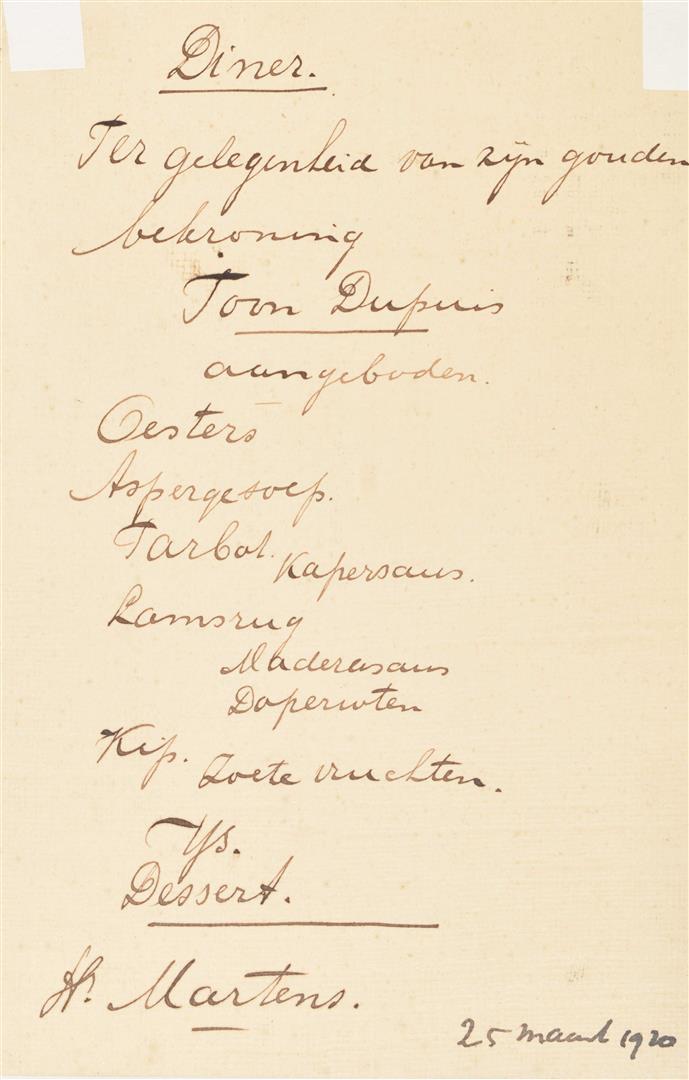 Diner.
Ter gelegenheid van zijn gouden
bekroning
Toon Dupuis
aangeboden.
Oesters
Aspergesoep.
Tarbot. Kapersaus.
Lamsrug
Maderasaus
Doperwten
Kip. Zoete vruchten.
Ys.
Dessert.
H. Martens.
25 maart 1920